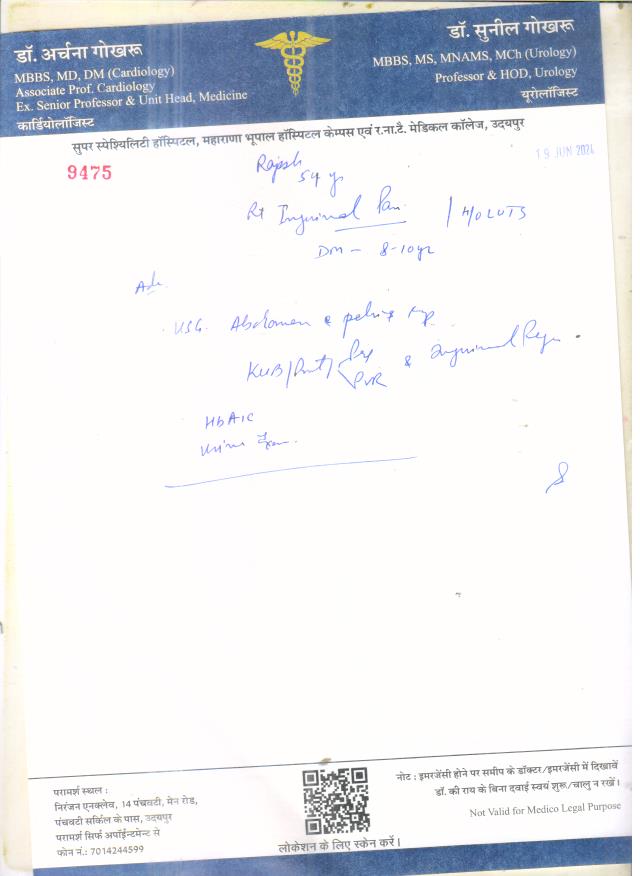 डॉ. अर्चना गोखरू
MBBS, MD, DM (Cardiology)
Associate Prof. Cardiology
Ex. Senior Professor & Unit Head, Medicine
कार्डियोलॉजिस्ट
डॉ. सुनील गोखरू
MBBS, MS, MNAMS, MCh (Urology)
Professor & HOD, Urology
यूरोलॉजिस्ट
सुपर स्पेश्यिलिटी हॉस्पिटल, महाराणा भूपाल हॉस्पिटल केम्पस एवं र.ना.टै. मेडिकल कॉलेज, उदयपुर
9475
19 JUN 2024
Rajesh
54 yr
Rt Inguinal Pain | H/O LUTS
DM - 8-10yr
Adv.
USG. Abdomen & pelvis
KUB/Prost/ Pre & Inguinal Region
PVR
HbA1C
Urine Exam.
परामर्श स्थल :
निरंजन एनक्लेव, 14 पंचवटी, मेन रोड,
पंचवटी सर्किल के पास, उदयपुर
परामर्श सिर्फ अपॉईन्टमेन्ट से
फोन नं.: 7014244599
लोकेशन के लिए स्केन करें।
नोट : इमरजेंसी होने पर समीप के डॉक्टर/इमरजेंसी में दिखावें
डॉ. की राय के बिना दवाई स्वयं शुरू/चालु न रखें।
Not Valid for Medico Legal Purpose